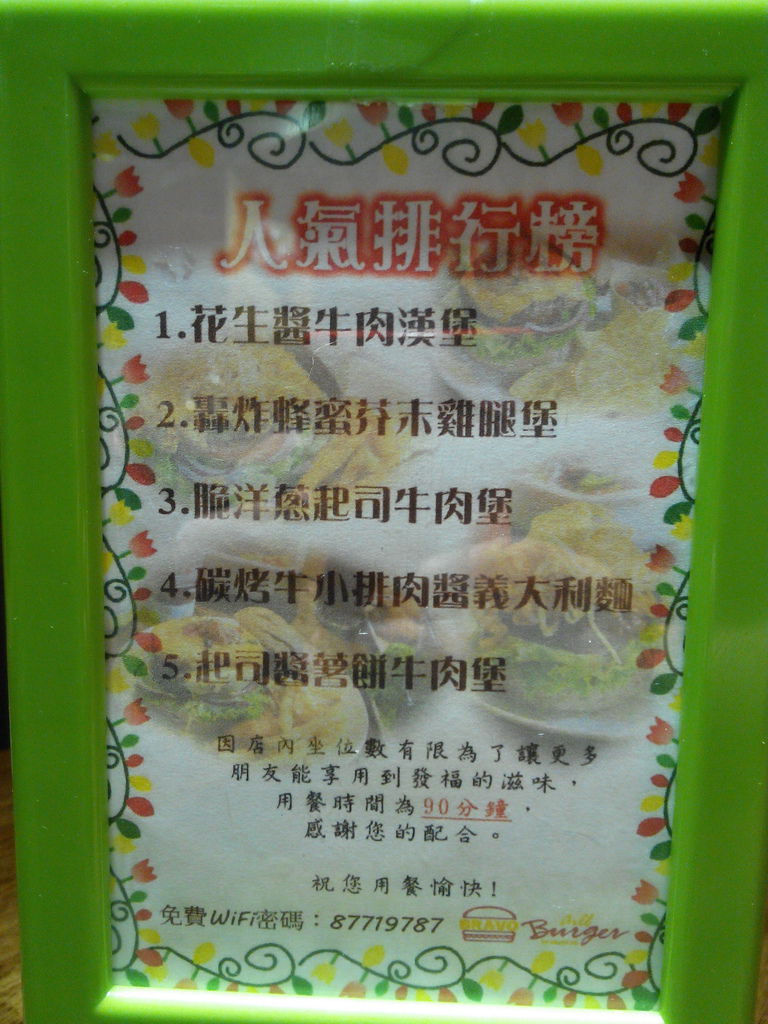 人氣排行榜
1.花生醬牛肉漢堡
2.轟炸蜂蜜芥末雞腿堡
3.脆洋蔥起司牛肉堡
4.碳烤牛小排肉醬義大利麵
5.起司醬薯餅牛肉堡
因店內坐位數有限為了讓更多
朋友能享用到發福的滋味，
用餐時間為90分鐘，
感謝您的配合。
祝您用餐愉快!
免費WiFi密碼：87719787
BRAVO Burger